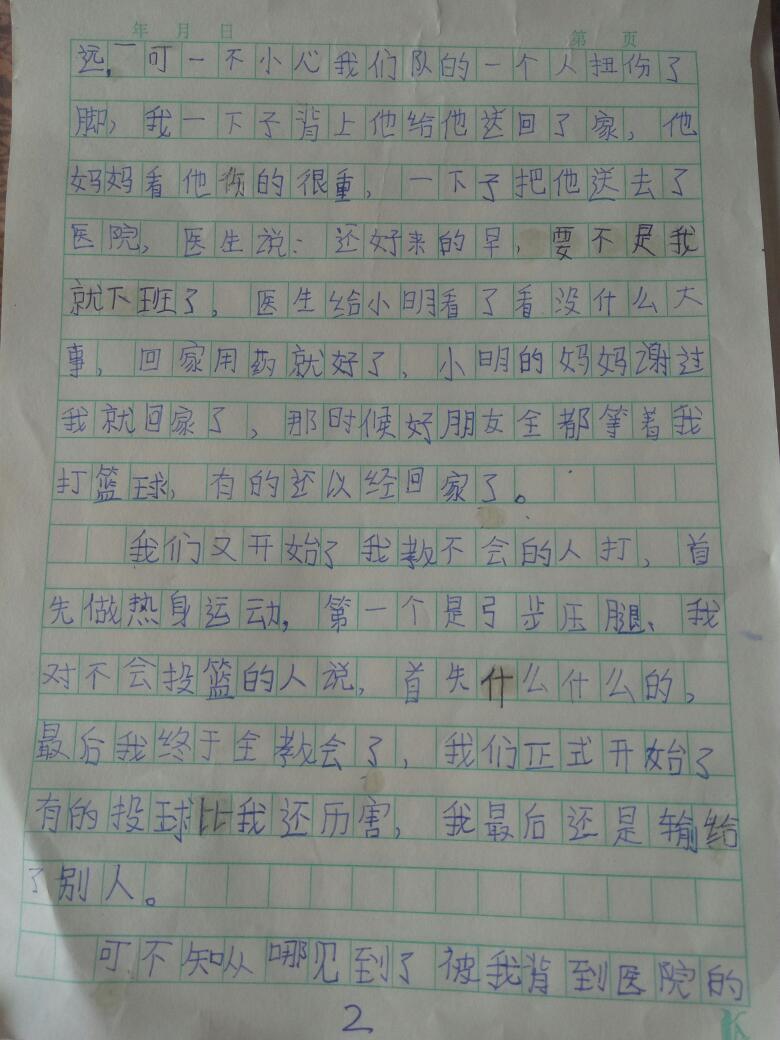 年 月 日 第 页
远,一可一不小心我们队的一个人扭伤了
脚,我一下子背上他给他送回了家,他
妈妈看他伤的很重,一下子把他送去了
医院,医生说:还好来的早,要不是我
就下班了。医生给小明看了看没什么大
事,回家用药就好了,小明的妈妈谢过
我就回家了,那时候好朋友全都等着我
打篮球,有的还以经回家了。
我们又开始了我教不会的人打,首
先做热身运动,第一个是弓步压腿、我
对不会投篮的人说,首先什么什么的,
最后我终于全教会了,我们正式开始了
有的投球比我还历害,我最后还是输给
了别人。
可不知从哪见到了被我背到医院的
2